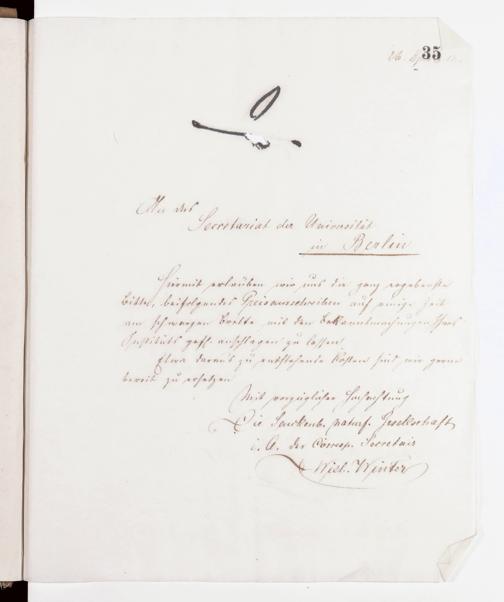 35
An das
Secretariat der Universität
in Berlin
Hiermit erlauben wir uns die ganz ergebenste
Bitte, beifolgendes Preisausschreiben auf einige Zeit
am schwarzen Brette mit den Bekanntmachungen Ihres
Instituts gefl. anschlagen zu lassen.
Etwa daraus zu entstehende Kosten sind wir gerne
bereit zu ersetzen
Mit vorzüglicher Hochachtung
Die Senckenb. naturf. Gesellschaft
i. A. der Corresp. Secretair
Wilh. Winter